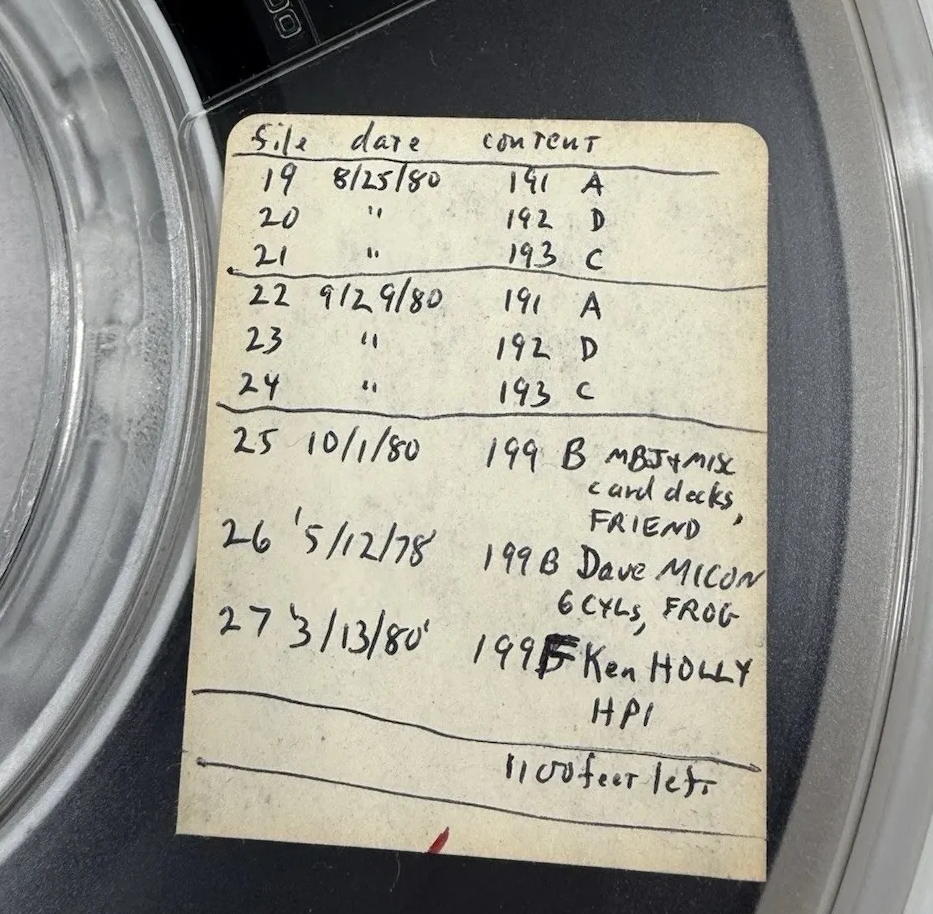 file date content
19 8/25/80 191 A
20 " 192 D
21 " 193 C
22 9/29/80 191 A
23 " 192 D
24 " 193 C
25 10/1/80 199 B MBJ+MISC
card decks,
FRIEND
26 '5/12/78' 199B Dave MICON
6 CYLs, FROG
27 '3/13/80' 199F Ken HOLLY
HPI
1100 feet left